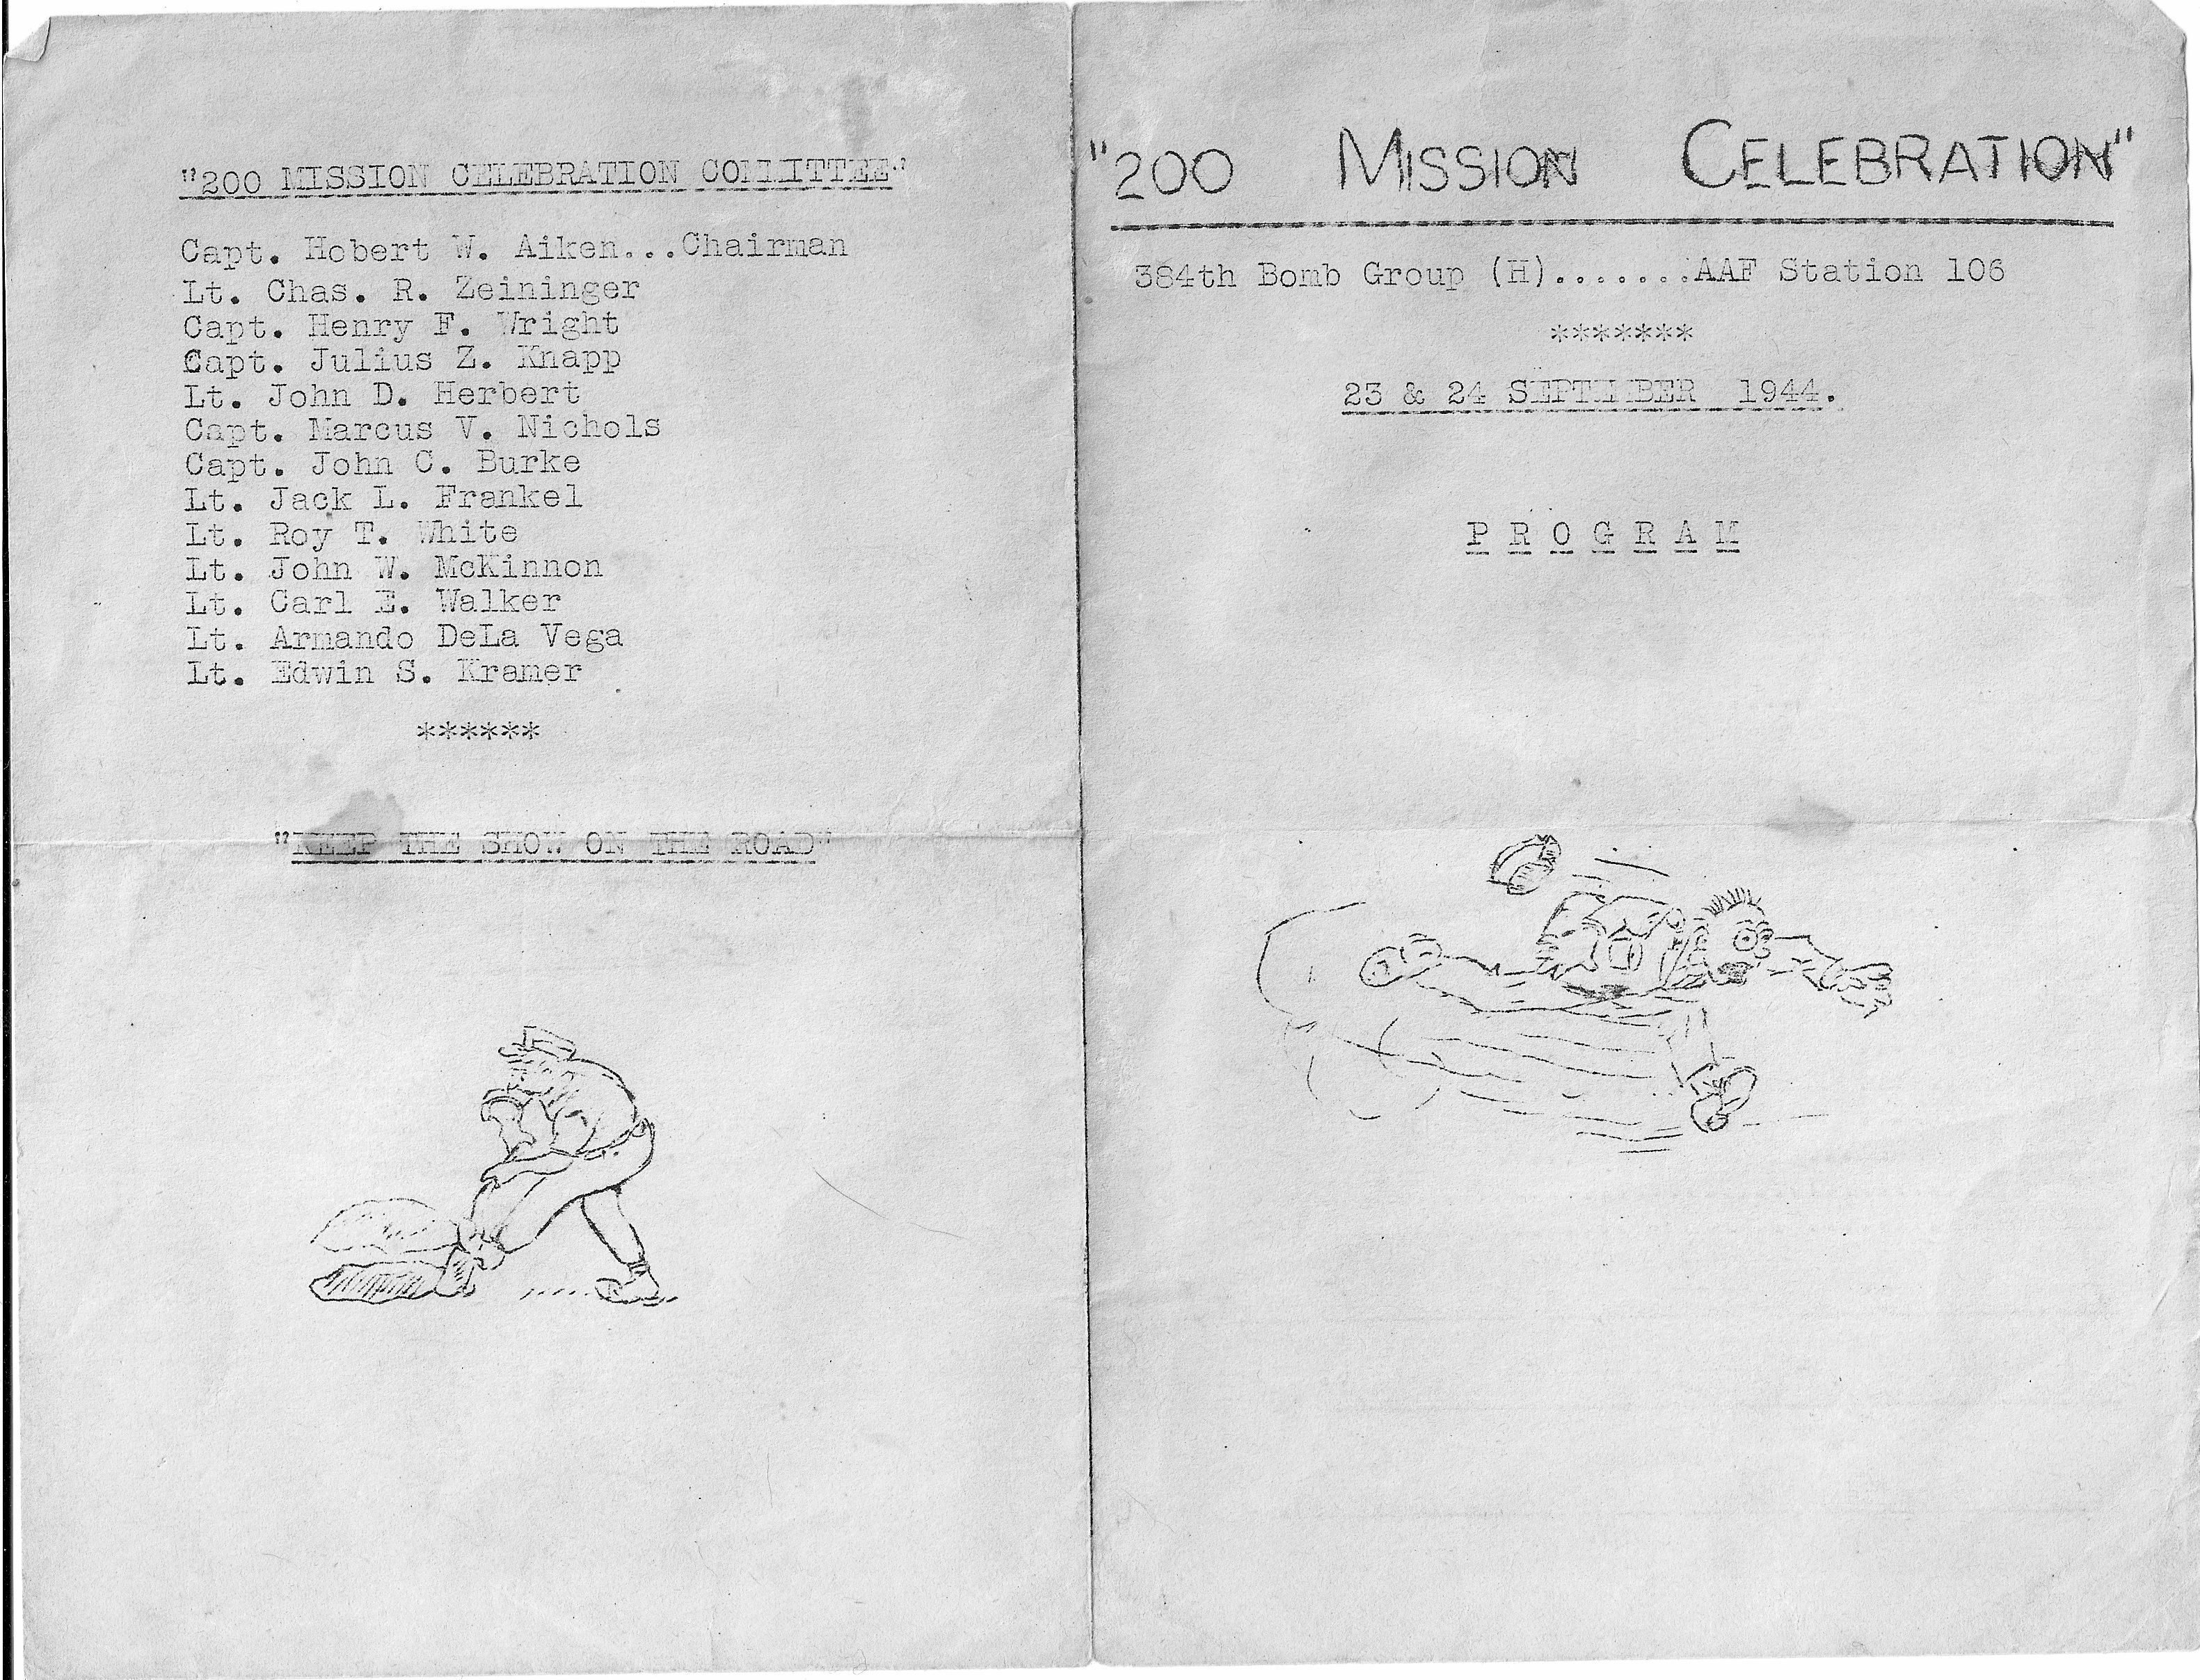 "200 MISSION CELEBRATION COMMITTEE"
Capt. Hobert W. Aiken...Chairman
Lt. Chas. R. Zeininger
Capt. Henry F. Wright
Capt. Julius Z. Knapp
Lt. John D. Herbert
Capt. Marcus V. Nichols
Capt. John C. Burke
Lt. Jack L. Frankel
Lt. Roy T. White
Lt. John W. McKinnon
Lt. Carl E. Walker
Lt. Armando DeLa Vega
Lt. Edwin S. Kramer
******
"KEEP THE SHOW ON THE ROAD"
"200 MISSION CELEBRATION"
384th Bomb Group (H).......AAF Station 106
*******
23 & 24 SEPTEMBER 1944.
P R O G R A M